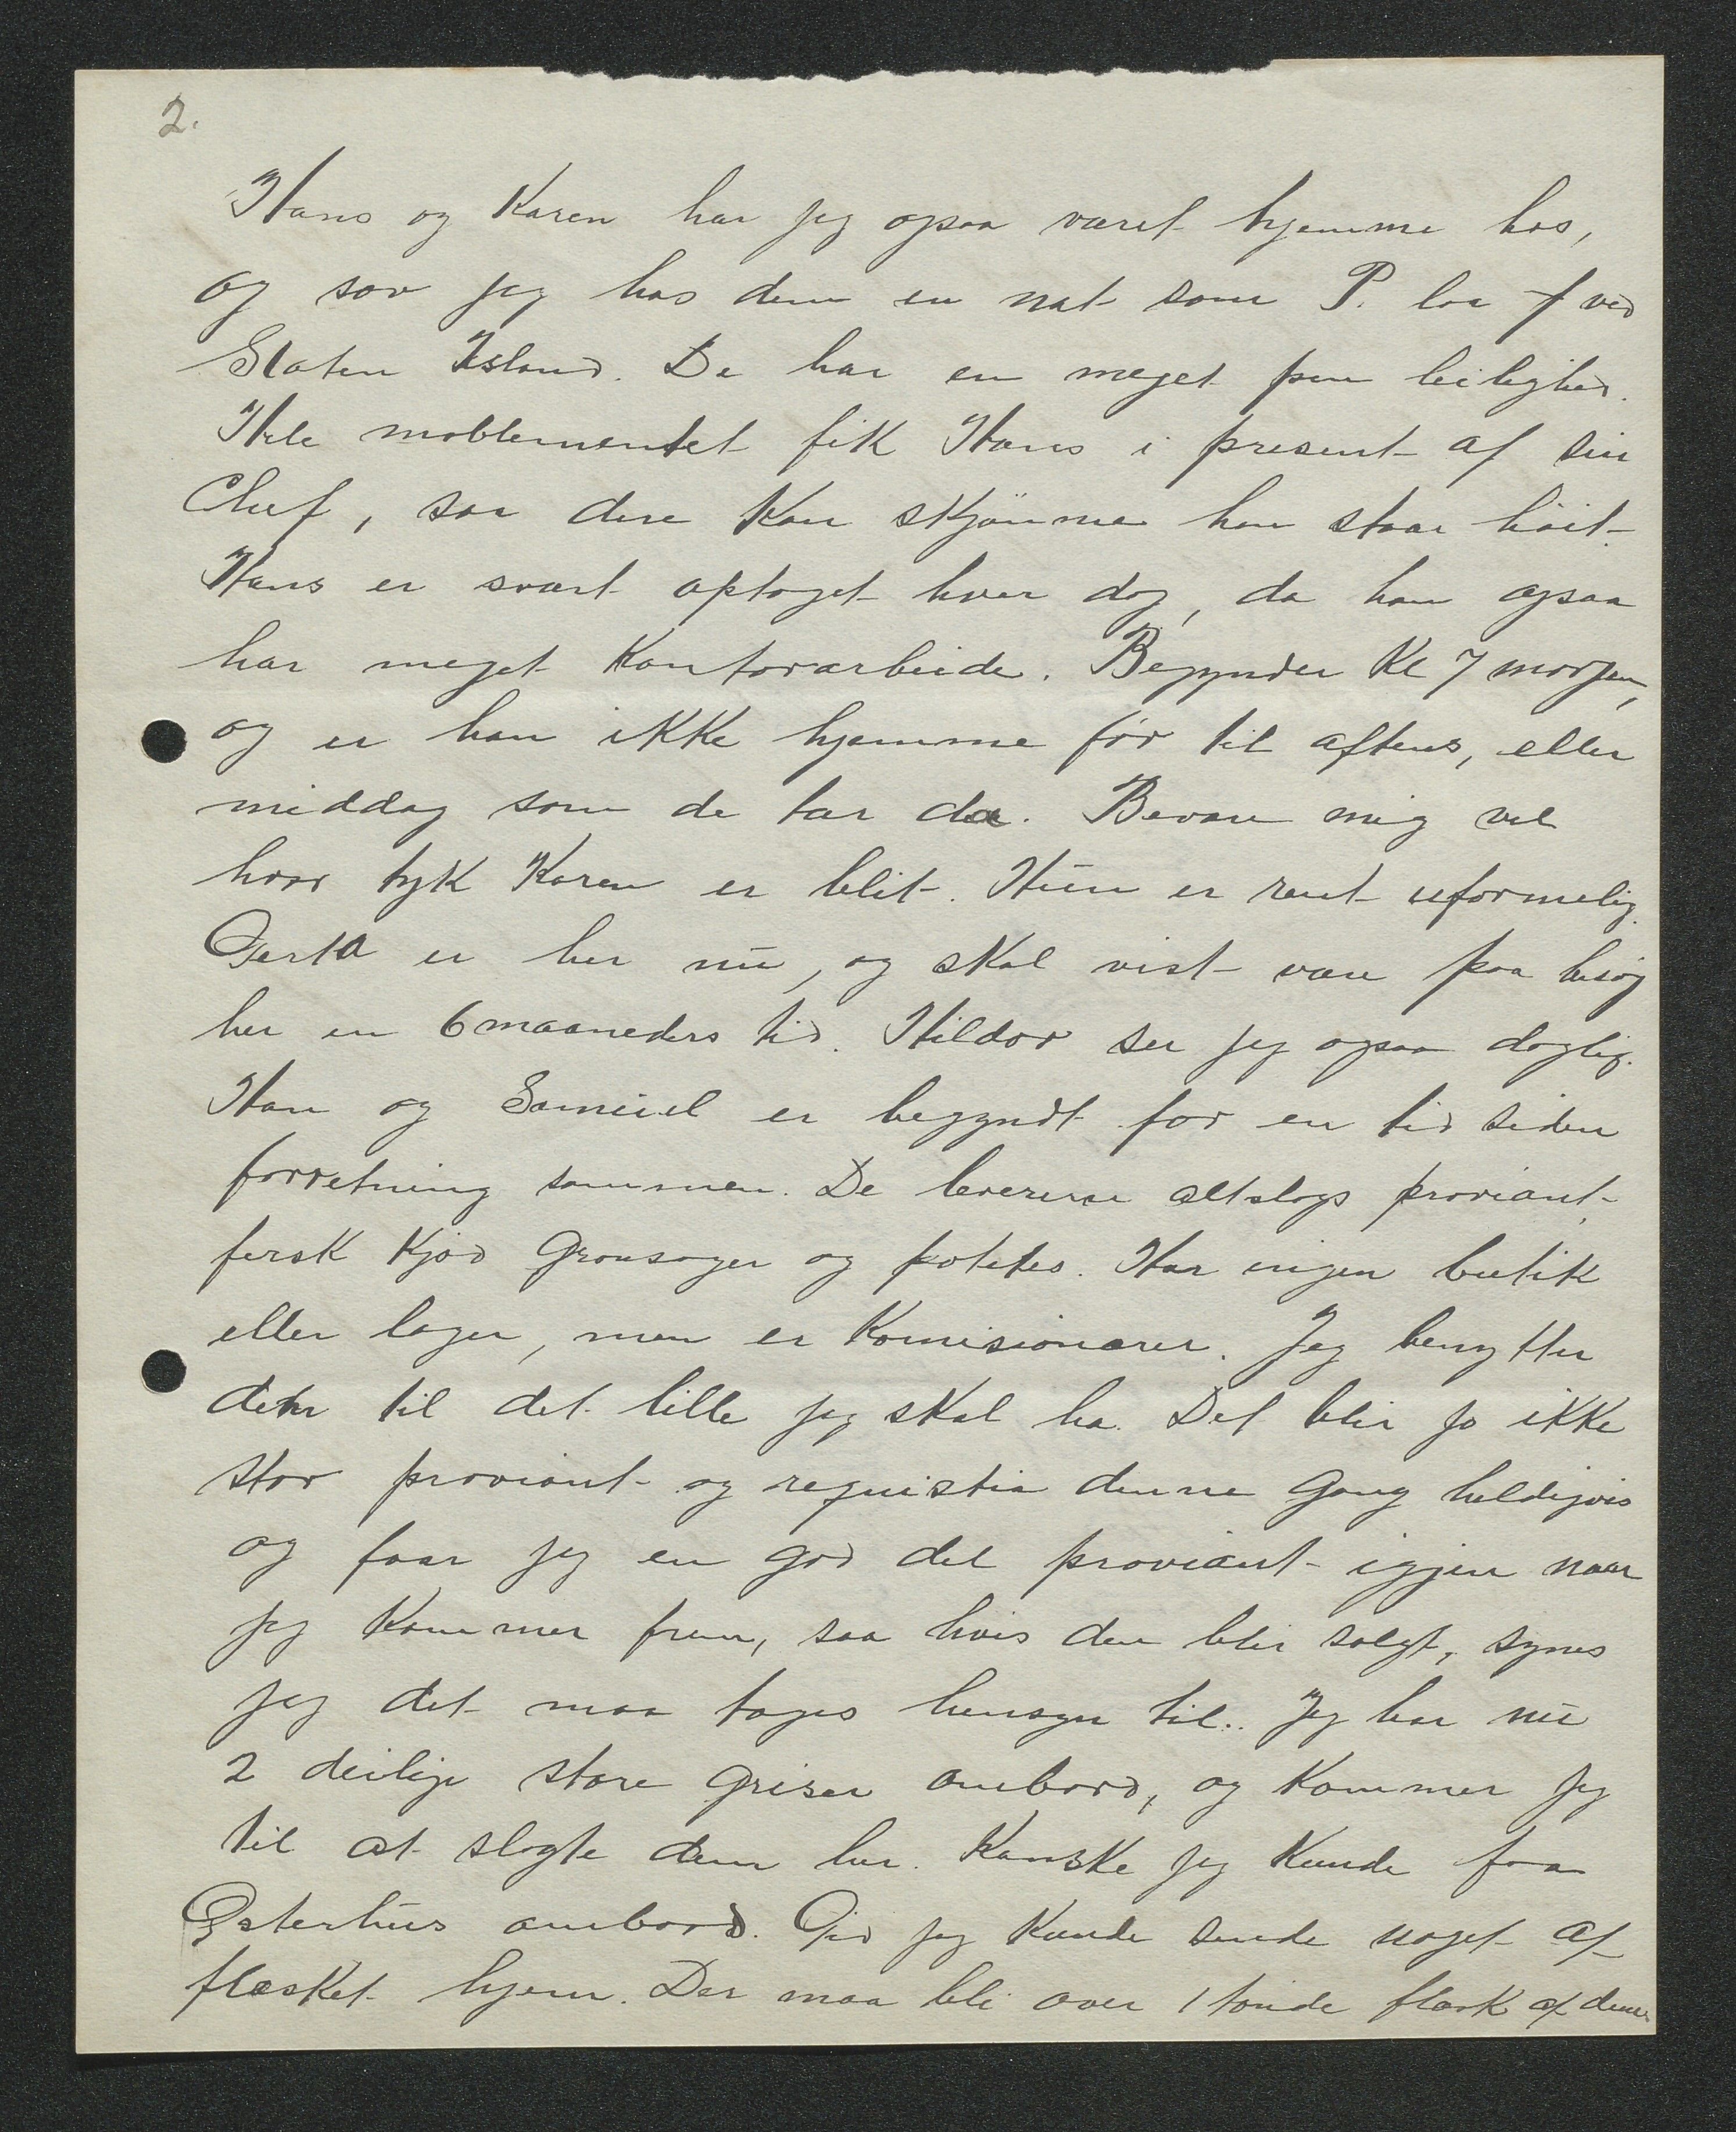 2.
Hans og Karen har jeg ogsaa været hjemme hos,
og sov jeg hos dem en nat som P. laa f ved
Staten Island. De har en meget pen leilighed.
Hele moblementet fik Hans i present af sin
Chef, saa dere kan skjönne han staar höit.
Hans er svært optaget hver dag, da han ogsaa
har meget kontorarbeide. Begynder Kl 7 morgen,
og er han ikke hjemme för til aftens, eller
middag som de tar da. Bevare mig vel
hvor tyk Karen er blit. Hun er rent uformelig.
Gerta er her nu, og skal vist være paa besög
her en 6 maaneders tid. Hildor ser jeg ogsaa daglig.
Han og Samuel er begyndt for en tid siden
forretning sammen. De levererer altslags proviant,
fersk Kjöd Grönsager og potetes. Har ingen butik
eller lager, men er Komisionærer. Jeg benytter
dem til det lille jeg skal ha. Det blir jo ikke
stor proviant og requistia denne Gang heldigvis
og faar jeg en god del proviant igjen naar
jeg kommer frem, saa hvis den blir solgt, synes
jeg det maa tages hensyn til. Jeg har nu
2 deilige store Griser ombord, og Kommer jeg
til at slagte dem her. Kanske jeg Kunde faa
Østerhus ombord. Gid jeg Kunde sende noget af
flæsket hjem. Der maa bli over 1 tönde flæsk af dem